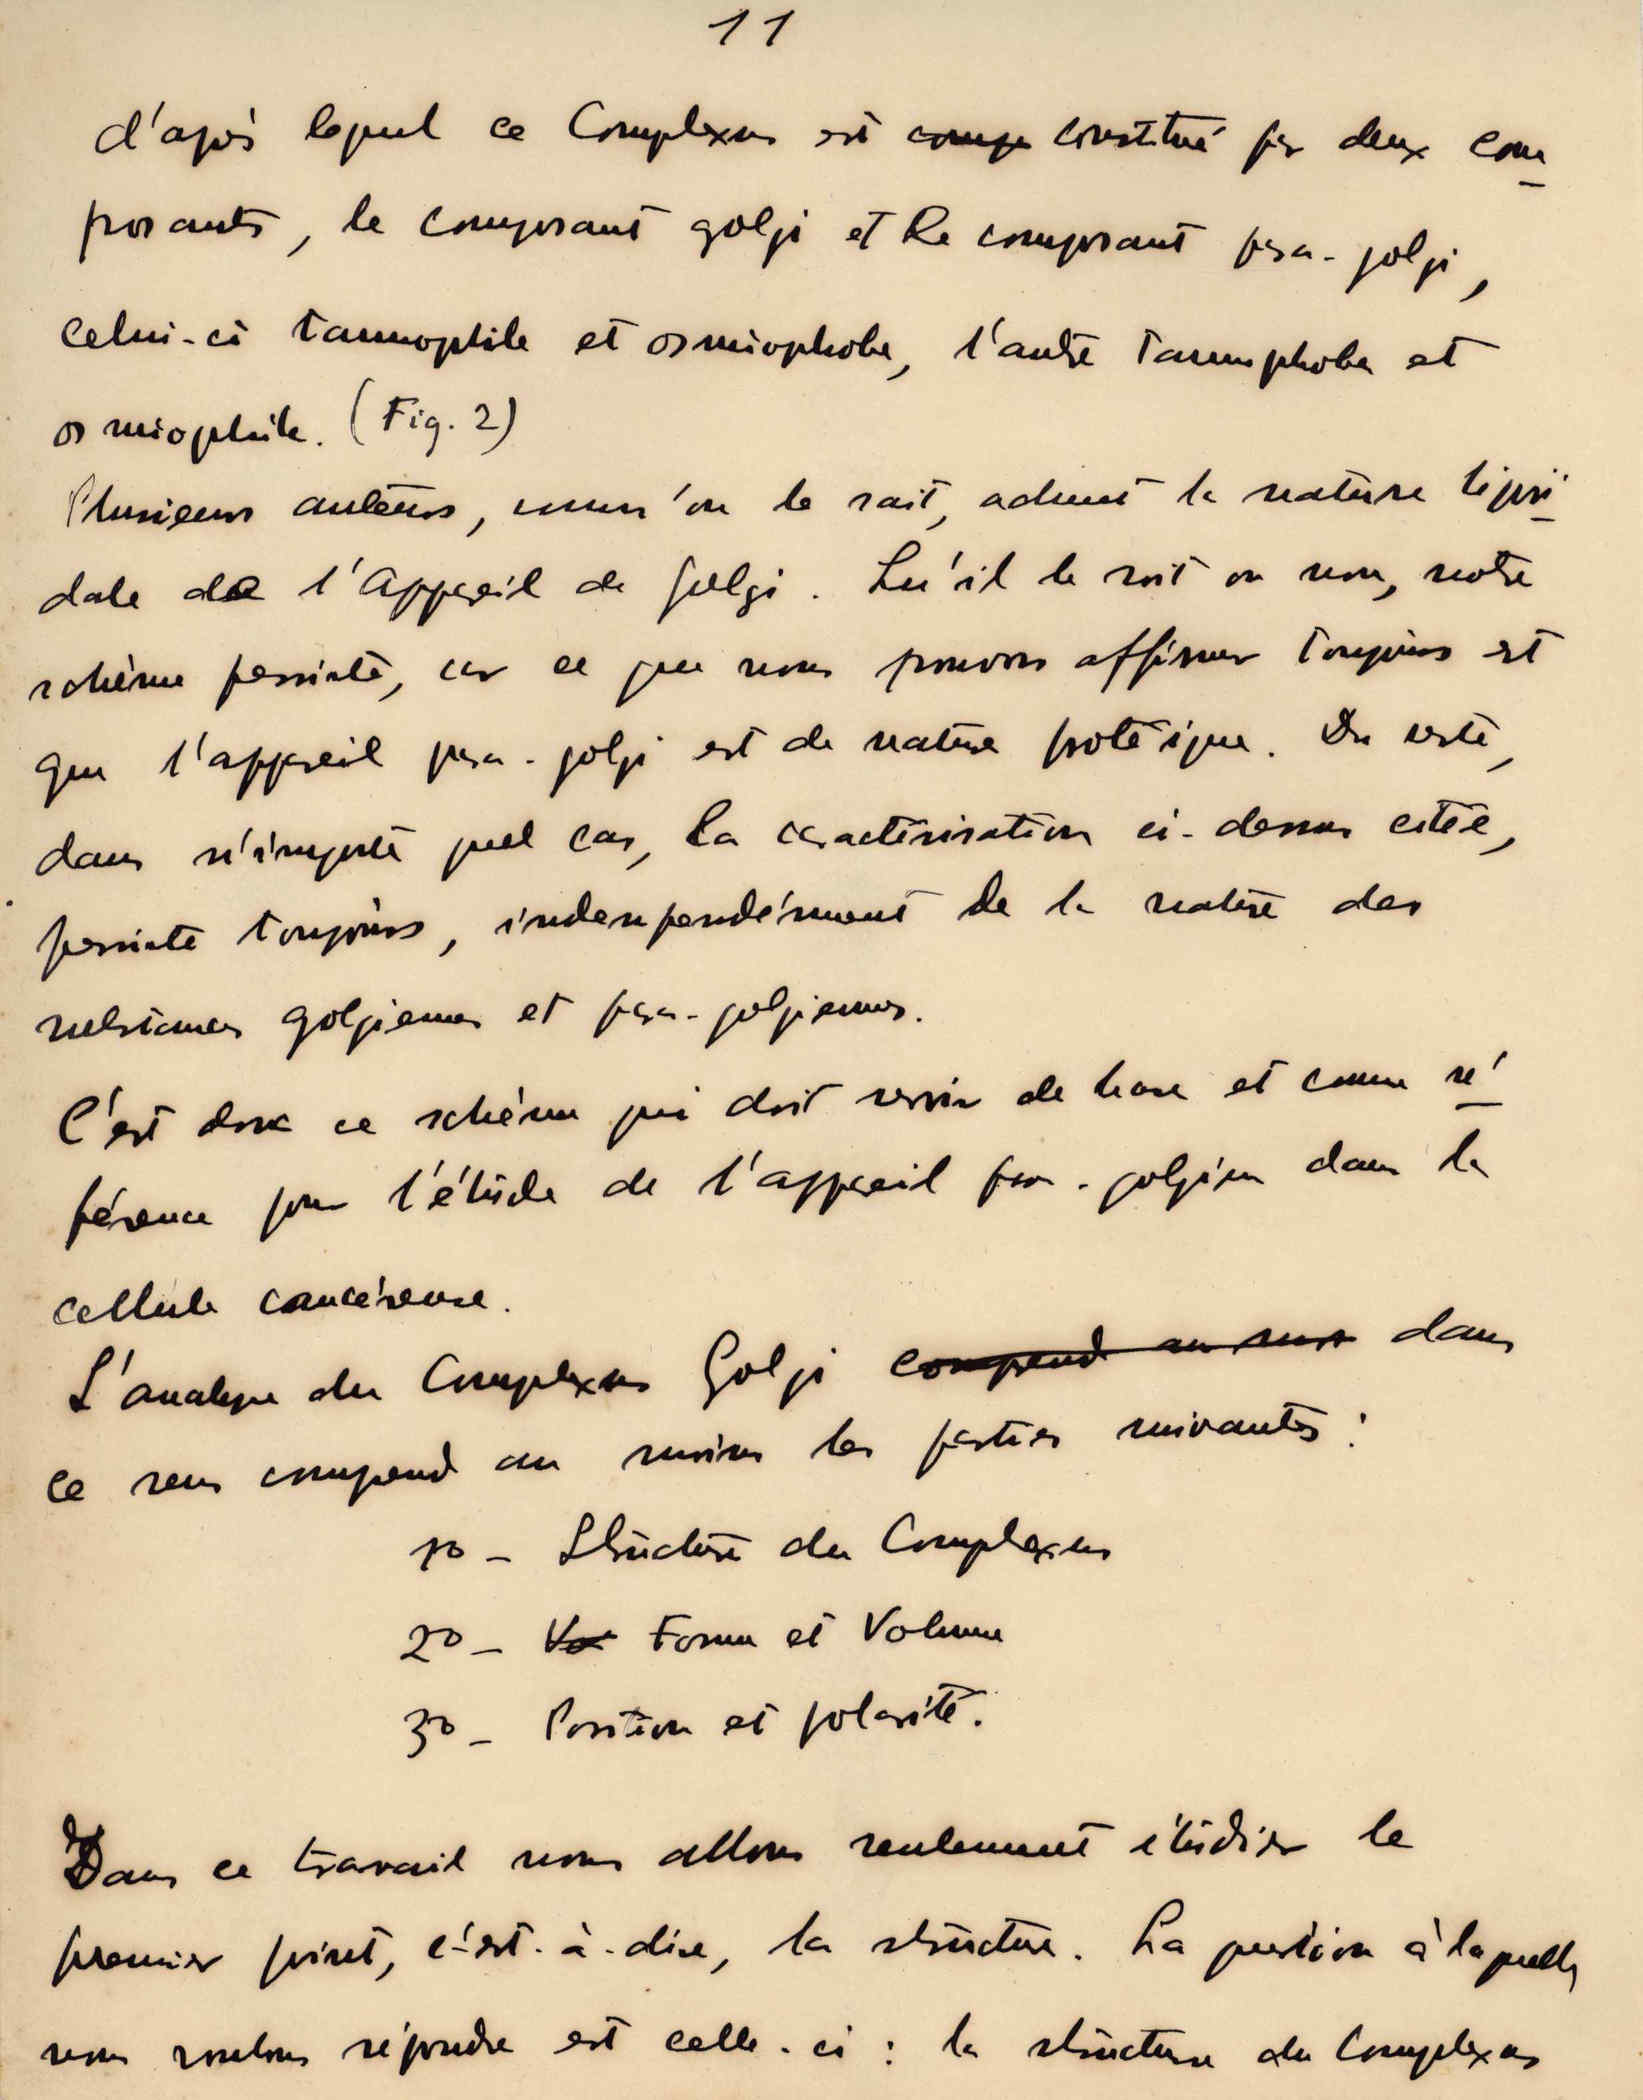 11
d'après lequel ce Complexus est compo constitué par deux com
posants, le composant golgi et le composant para-golgi,
celui-ci tannophile et osmiophobe, l'autre tannophobe et
osmiophile. (Fig. 2)
Plusieurs auteurs, comm'on le sait, admet la nature lipoï
dale de l'Appareil de Golgi. Qu'il le soit ou non, notre
schème persiste, car ce que nous pouvons affirmer toujours est
que l'appareil para-golgi est de nature protéique. Du reste,
dans n'importe quel cas, la caractérisation ci-dessus citée,
persiste toujours, indenpendémment de la nature des
substances golgiennes et para-golgiennes.
C'est donc ce schème qui doit servir de base et comme ré
férence pour l'étude de l'appareil para-golgien dans la
cellule cancéreuse.
L'analyse du Complexus Golgi comprend au moins dans
ce sens comprend au moins les parties suivantes:
1º - Structure du Complexus
2º - Vo Forme et Volume
3º - Position et polarité.
Dans ce travail nous allons seulement étudier le
premier point, c'est-à-dire, la structure. La question à laquelle
nous voulons répondre est celle-ci: la structure du Complexus